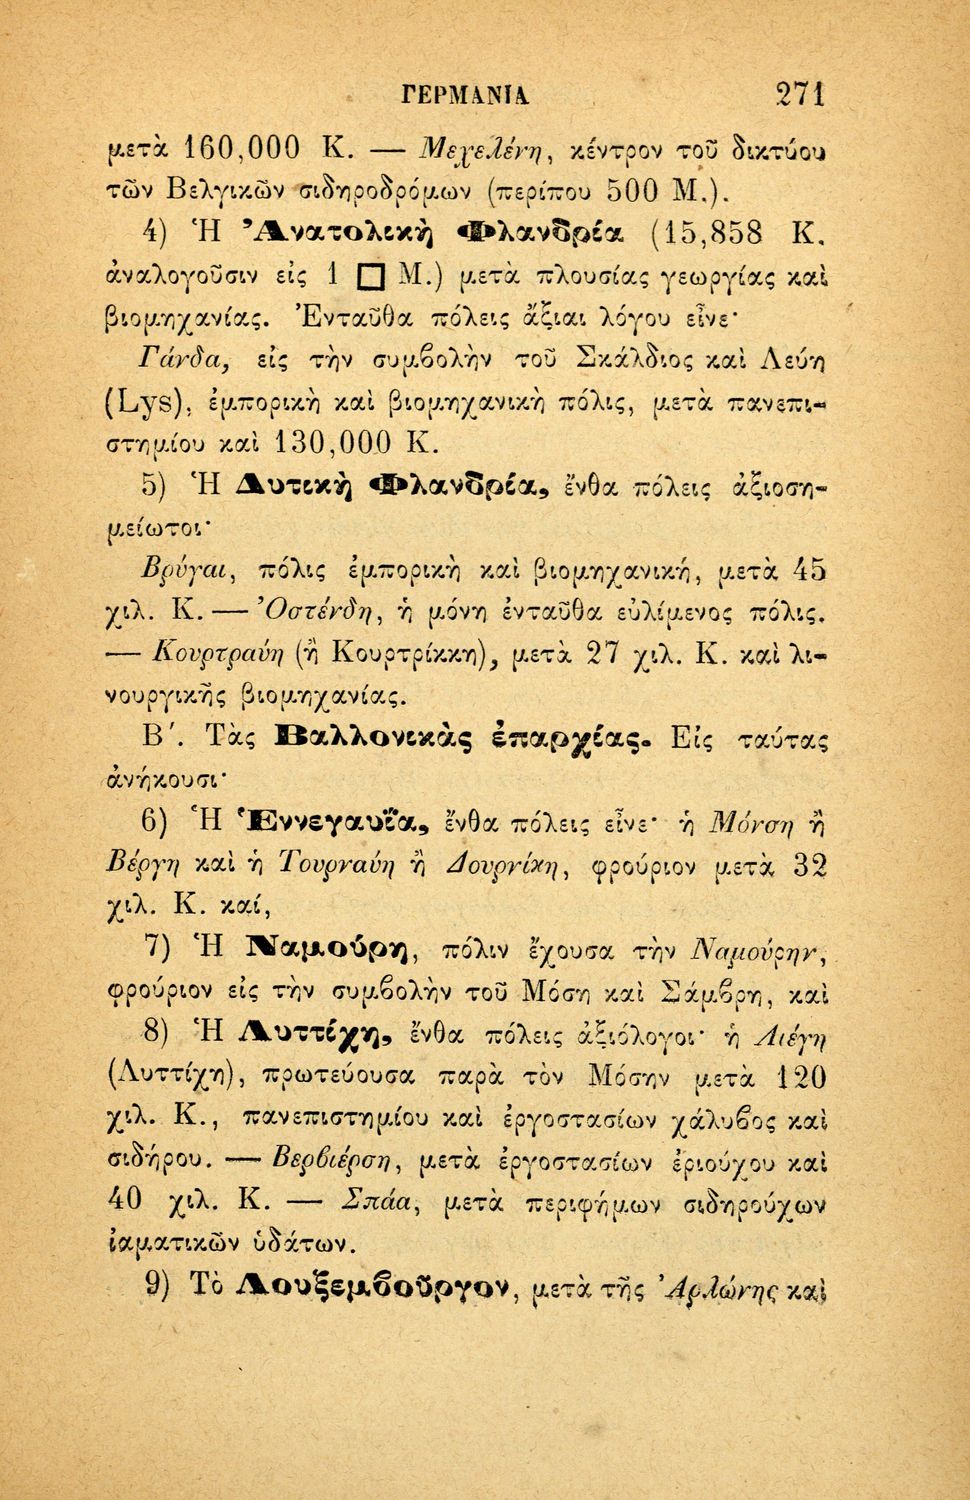 ΓΕΡΜΑΝΙΑ 271
μετὰ 160,000 Κ. — Μεχελένη, κέντρον τοῦ δικτύου
τῶν Βελγικῶν σιδηροδρόμων (περίπου 500 Μ.).
4) Ἡ Ἀνατολικὴ Φλανδρία (15,858 Κ.
ἀναλογοῦσιν εἰς 1 □ Μ.) μετὰ πλουσίας γεωργίας καὶ
βιομηχανίας. Ἐνταῦθα πόλεις ἄξιαι λόγου εἶνε·
Γάνδα, εἰς τὴν συμβολὴν τοῦ Σκάλδιος καὶ Λεύη
(Lys), ἐμπορικὴ καὶ βιομηχανικὴ πόλις, μετὰ πανεπι-
στημίου καὶ 130,000 Κ.
5) Ἡ Δυτικὴ Φλανδρία, ἔνθα πόλεις ἀξιοση-
μείωτοι·
Βρύγαι, πόλις ἐμπορικὴ καὶ βιομηχανική, μετὰ 45
χιλ. Κ. — Ὀστένδη, ἡ μόνη ἐνταῦθα εὐλίμενος πόλις.
— Κουρτραύη (ἢ Κουρτρίκκη), μετὰ 27 χιλ. Κ. καὶ λι-
νουργικῆς βιομηχανίας.
Β΄. Τὰς Βαλλονικὰς ἐπαρχίας. Εἰς ταύτας
ἀνήκουσι·
6) Ἡ Ἑννεγαυΐα, ἔνθα πόλεις εἶνε· ἡ Μόνση ἢ
Βέργη καὶ ἡ Τουρναύη ἢ Δουρνίκη, φρούριον μετὰ 32
χιλ. Κ. καί,
7) Ἡ Ναμούρη, πόλιν ἔχουσα τὴν Ναμούρην,
φρούριον εἰς τὴν συμβολὴν τοῦ Μόση καὶ Σάμβρη, καὶ
8) Ἡ Λυττίχη, ἔνθα πόλεις ἀξιόλογοι· ἡ Λιέγη
(Λυττίχη), πρωτεύουσα παρὰ τὸν Μόσην μετὰ 120
χιλ. Κ., πανεπιστημίου καὶ ἐργοστασίων χάλυβος καὶ
σιδήρου. — Βερβιέρση, μετὰ ἐργοστασίων ἐριούχου καὶ
40 χιλ. Κ. — Σπάα, μετὰ περιφήμων σιδηρούχων
ἰαματικῶν ὑδάτων.
9) Τὸ Λουξεμβοῦργον, μετὰ τῆς Ἀρλώνης καὶ